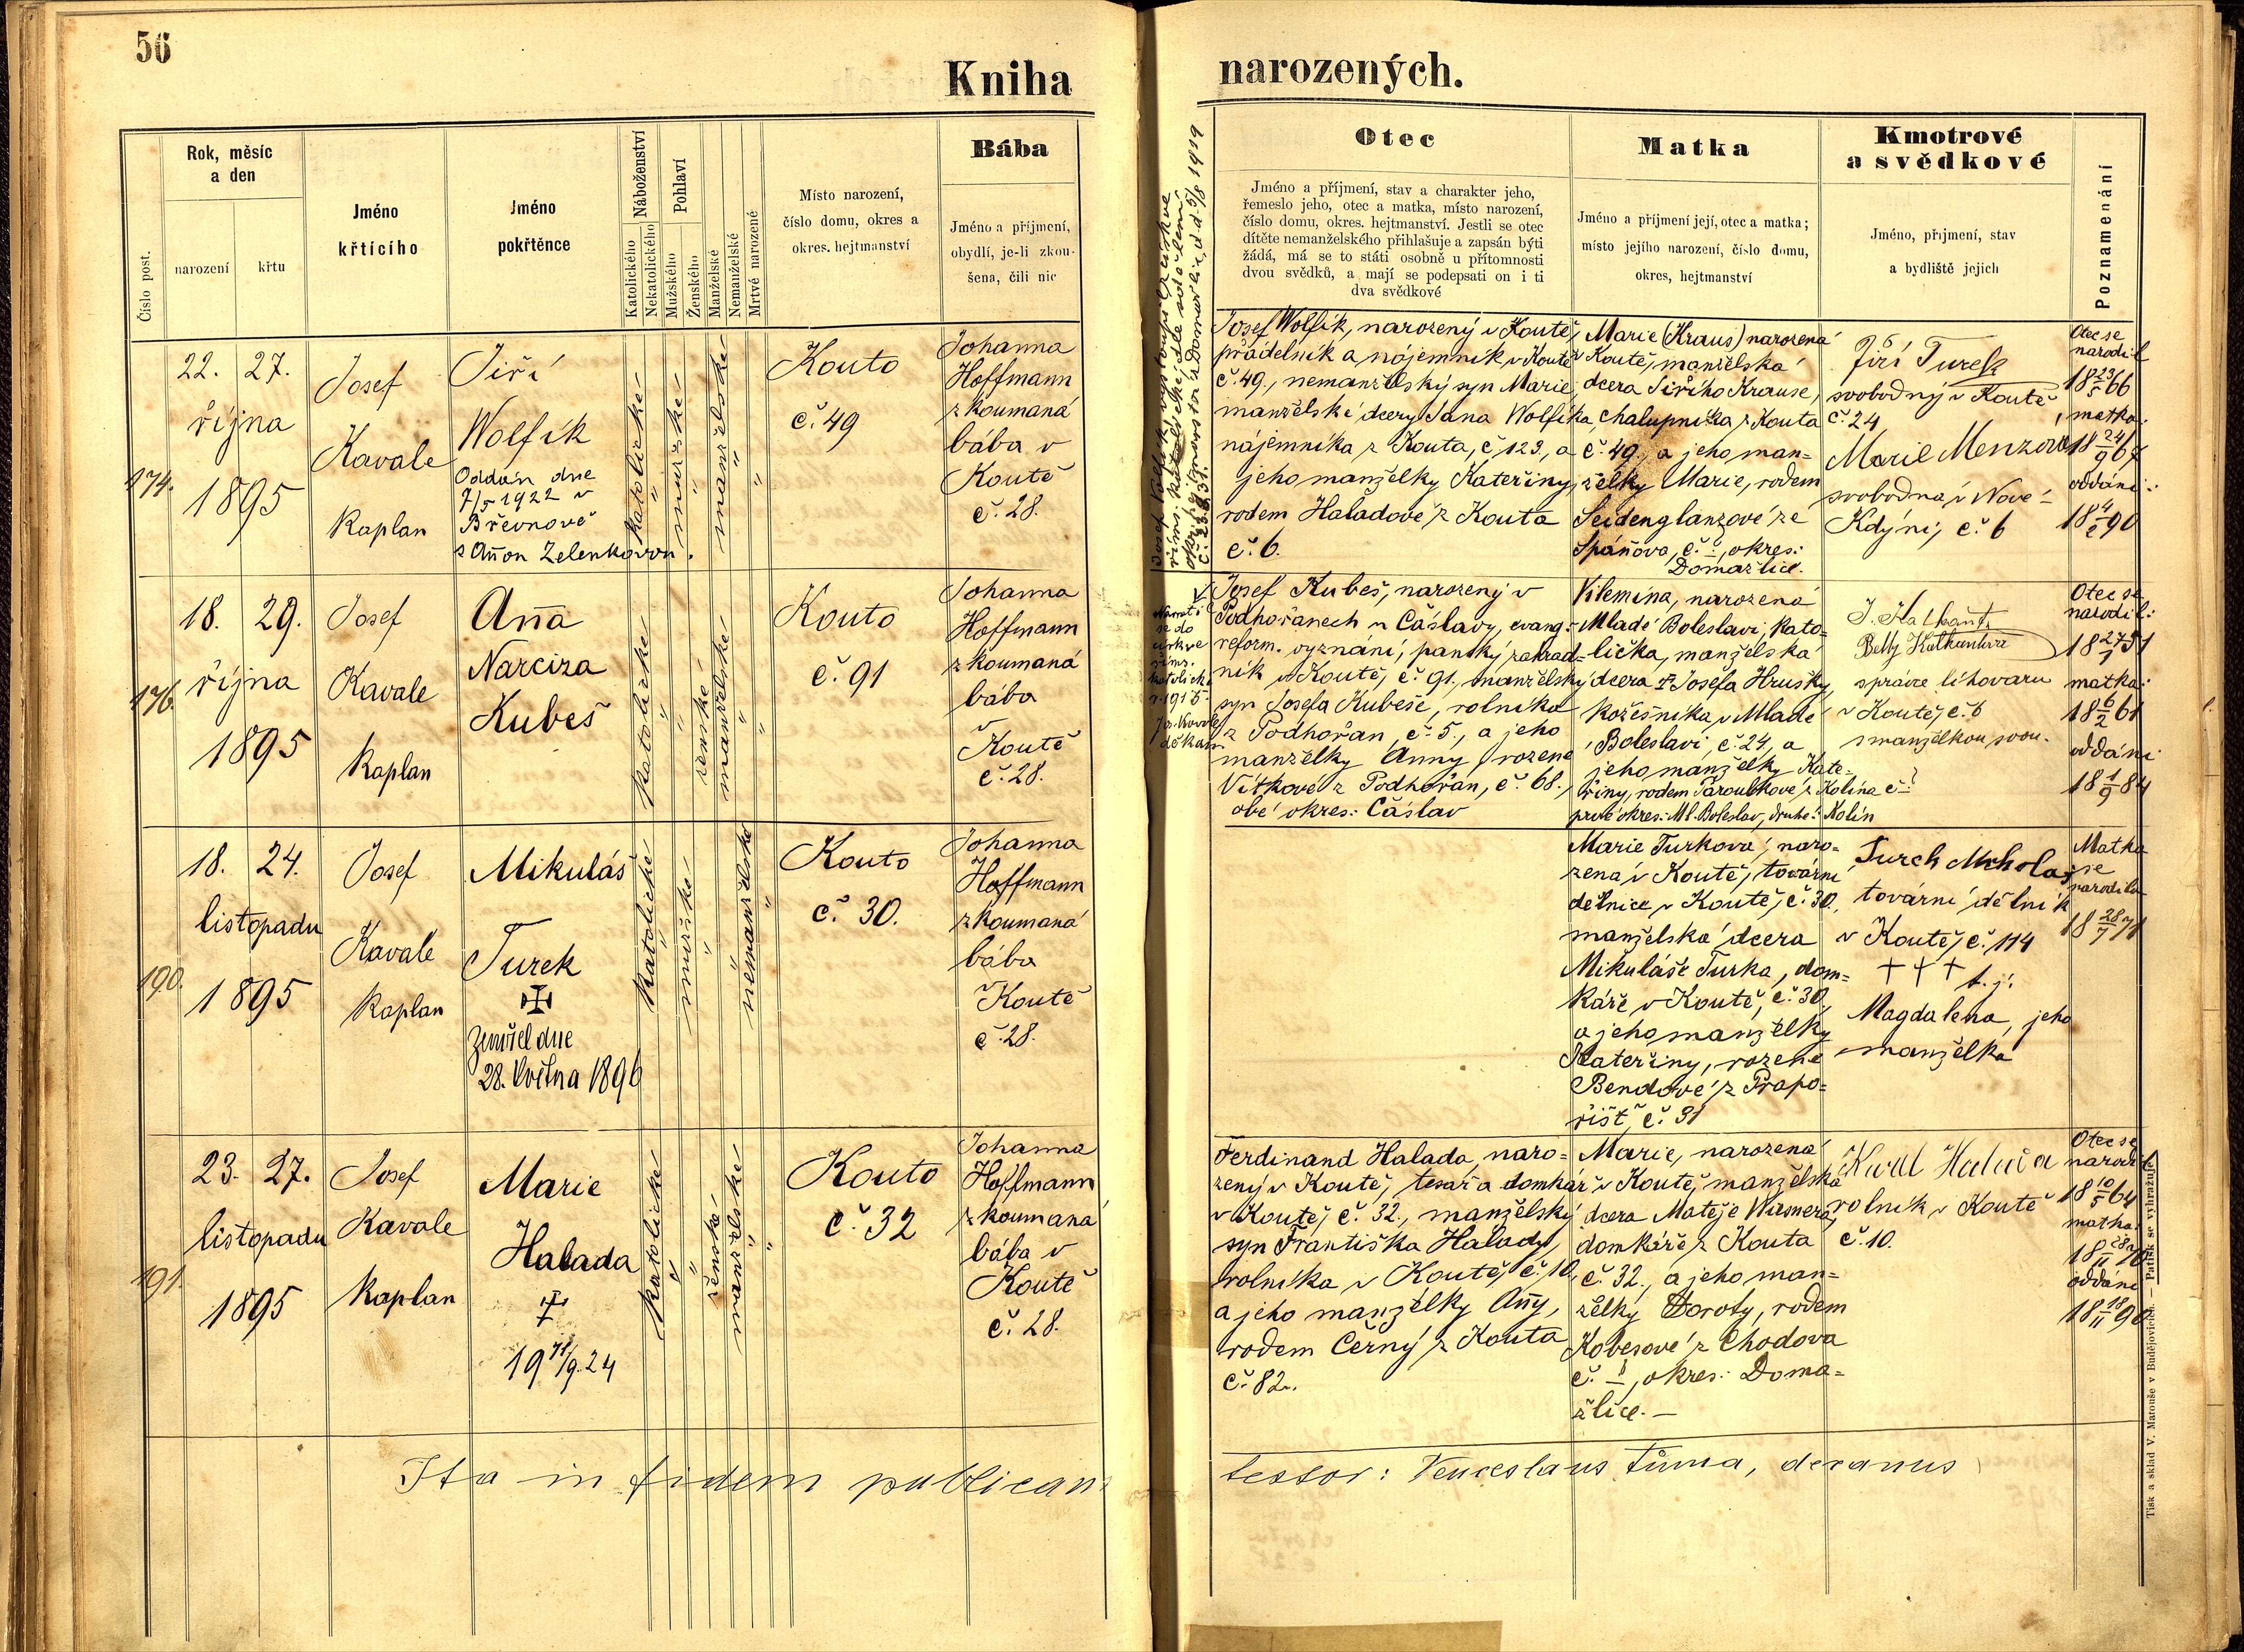 56
Kniha
narozených.
Číslo post.
Rok, měsíc
a den
narození
křtu
Jméno
křtícího
Jméno
pokřtěnce
Náboženství
Katolického
Nekatolického
Pohlaví
Mužského
Ženského
Manželské
Nemanželské
Mrtvé narozené
Místo narození,
číslo domu, okres a
okres. hejtmanství
Bába
Jméno a příjmení,
obydlí, je-li zkou-
šena, čili nic
Otec
Jméno a příjmení, stav a charakter jeho,
řemeslo jeho, otec a matka, místo narození,
číslo domu, okres. hejtmanství. Jestli se otec
dítěte nemanželského přihlašuje a zapsán býti
žádá, má se to státi osobně u přítomnosti
dvou svědků, a mají se podepsati on i ti
dva svědkové
Matka
Jméno a příjmení její, otec a matka;
místo jejího narození, číslo domu,
okres, hejtmanství
Kmotrové
a svědkové
Jméno, příjmení, stav
a bydliště jejich
Poznamenání
174.
22. 27.
října
1895
Josef
Kavale
Kaplan
Jiří
Wolfík
Oddán dne
7/5 1922 v
Břevnově
s Annou Zelenkovou.
Katolické
mužské
manželské
Kouto
č. 49
Johanna
Hoffmann
zkoumaná
bába v
Koutě
č. 28.
Josef Wolfík, narozený v Koutě,
přádelník a nájemník v Koutě
č. 49., nemanželský syn Marie,
manželské dcery Jana Wolfíka,
nájemníka z Kouta, č. 123., a
jeho manželky Kateřiny,
rodem Haladové z Kouta
č. 6.
Marie (Kraus) narozená
v Koutě, manželská
dcera Jiřího Krause,
chalupníka z Kouta
č. 49., a jeho man=
želky Marie, rodem
Seidenglanzové ze
Spáňova, č. –, okres:
Domažlice.
Jiří Turek
svobodný v Koutě
č. 24
Marie Menzová
svobodná v Nové
Kdýni, č. 6
Otec se
narodil
18 23/5 66
matka:
18 24/9 67
oddáni:
176.
18. 29.
října
1895
Josef
Kavale
Kaplan
Anna
Narciza
Kubeš
Katolické
ženské
manželské
Kouto
č. 91
Johanna
Hoffmann
zkoumaná
bába
v
Koutě
č. 28.
Navrátí
se do
církve
říms.
katolické
1915
děkan
Josef Kubeš, narozený v
Podhořanech u Čáslavy, evang.
reform. vyznání, panský zahrad=
ník v Koutě, č. 91., manželský
syn Josefa Kubeše, rolníka
z Podhořan, č. 5., a jeho
manželky Anny, rozené
Vítkové z Podhořan, č. 68.,
obé okres: Čáslav
Vilemína, narozená
v Mladé Boleslavi, kato=
lička, manželská
dcera † Josefa Hrušky,
kožešníka v Mladé
Boleslavi, č. 24, a
jeho manželky Kate=
řiny, rodem Paroulkové z Kolína č. – ?
prvé okres: Ml. Boleslav, druhé: Kolín
správce lihovaru
v Koutě, č. 6
s manželkou svou.
Otec se
narodil:
matka:
18 6/2 61
oddáni:
18 1/9 84
190.
18. 24.
listopadu
1895
Josef
Kavale
Kaplan
Mikuláš
Turek
Zemřel dne
28. května 1896
Katolické
mužské
nemanželské
Kouto
č. 30.
Johanna
Hoffmann
zkoumaná
bába
Koutě
č. 28.
Marie Turkova, naro=
zená v Koutě, tovární
dělnice v Koutě, č. 30.,
manželská dcera
Mikuláše Turka, dom=
káře v Koutě, č. 30,
a jeho manželky
Kateřiny, rozené
Bendové z Prapo=
řišť, č. 31
Turek Nicholas
tovární dělník
v Koutě, č. 114
† † † t. j.
Magdalena, jeho
manželka
Matka
se
narodila
18 28/7 71
191.
23. 27.
listopadu
1895
Josef
Kavale
Kaplan
Marie
Halada
†
Katolické
ženské
manželské
Kouto
č. 32
Johanna
Hoffmann
zkoumaná
bába v
Koutě
č. 28.
Ferdinand Halada, naro=
zený v Koutě, tesař a domkář
v Koutě, č. 32., manželský
syn Františka Halady,
rolníka v Koutě, č. 10,
a jeho manželky Anny,
rodem Černý z Kouta
č. 82.
Marie, narozená
v Koutě, manželská
dcera Matěje
domkáře z Kouta
č. 32., a jeho man=
želky Doroty, rodem
Kobesové z Chodova
č. –, okres: Doma=
žlice. –
Karel Halada
rolník v Koutě
č. 10.
Otec se
narodil
18 10/5 64
matka:
oddáni
18 18/11 90
Ita in fidem publicam
testor: Venceslaus Tůma, decanus
Tisk a sklad V. Matouše v Budějovicích. — Patisk se vyhražuje.